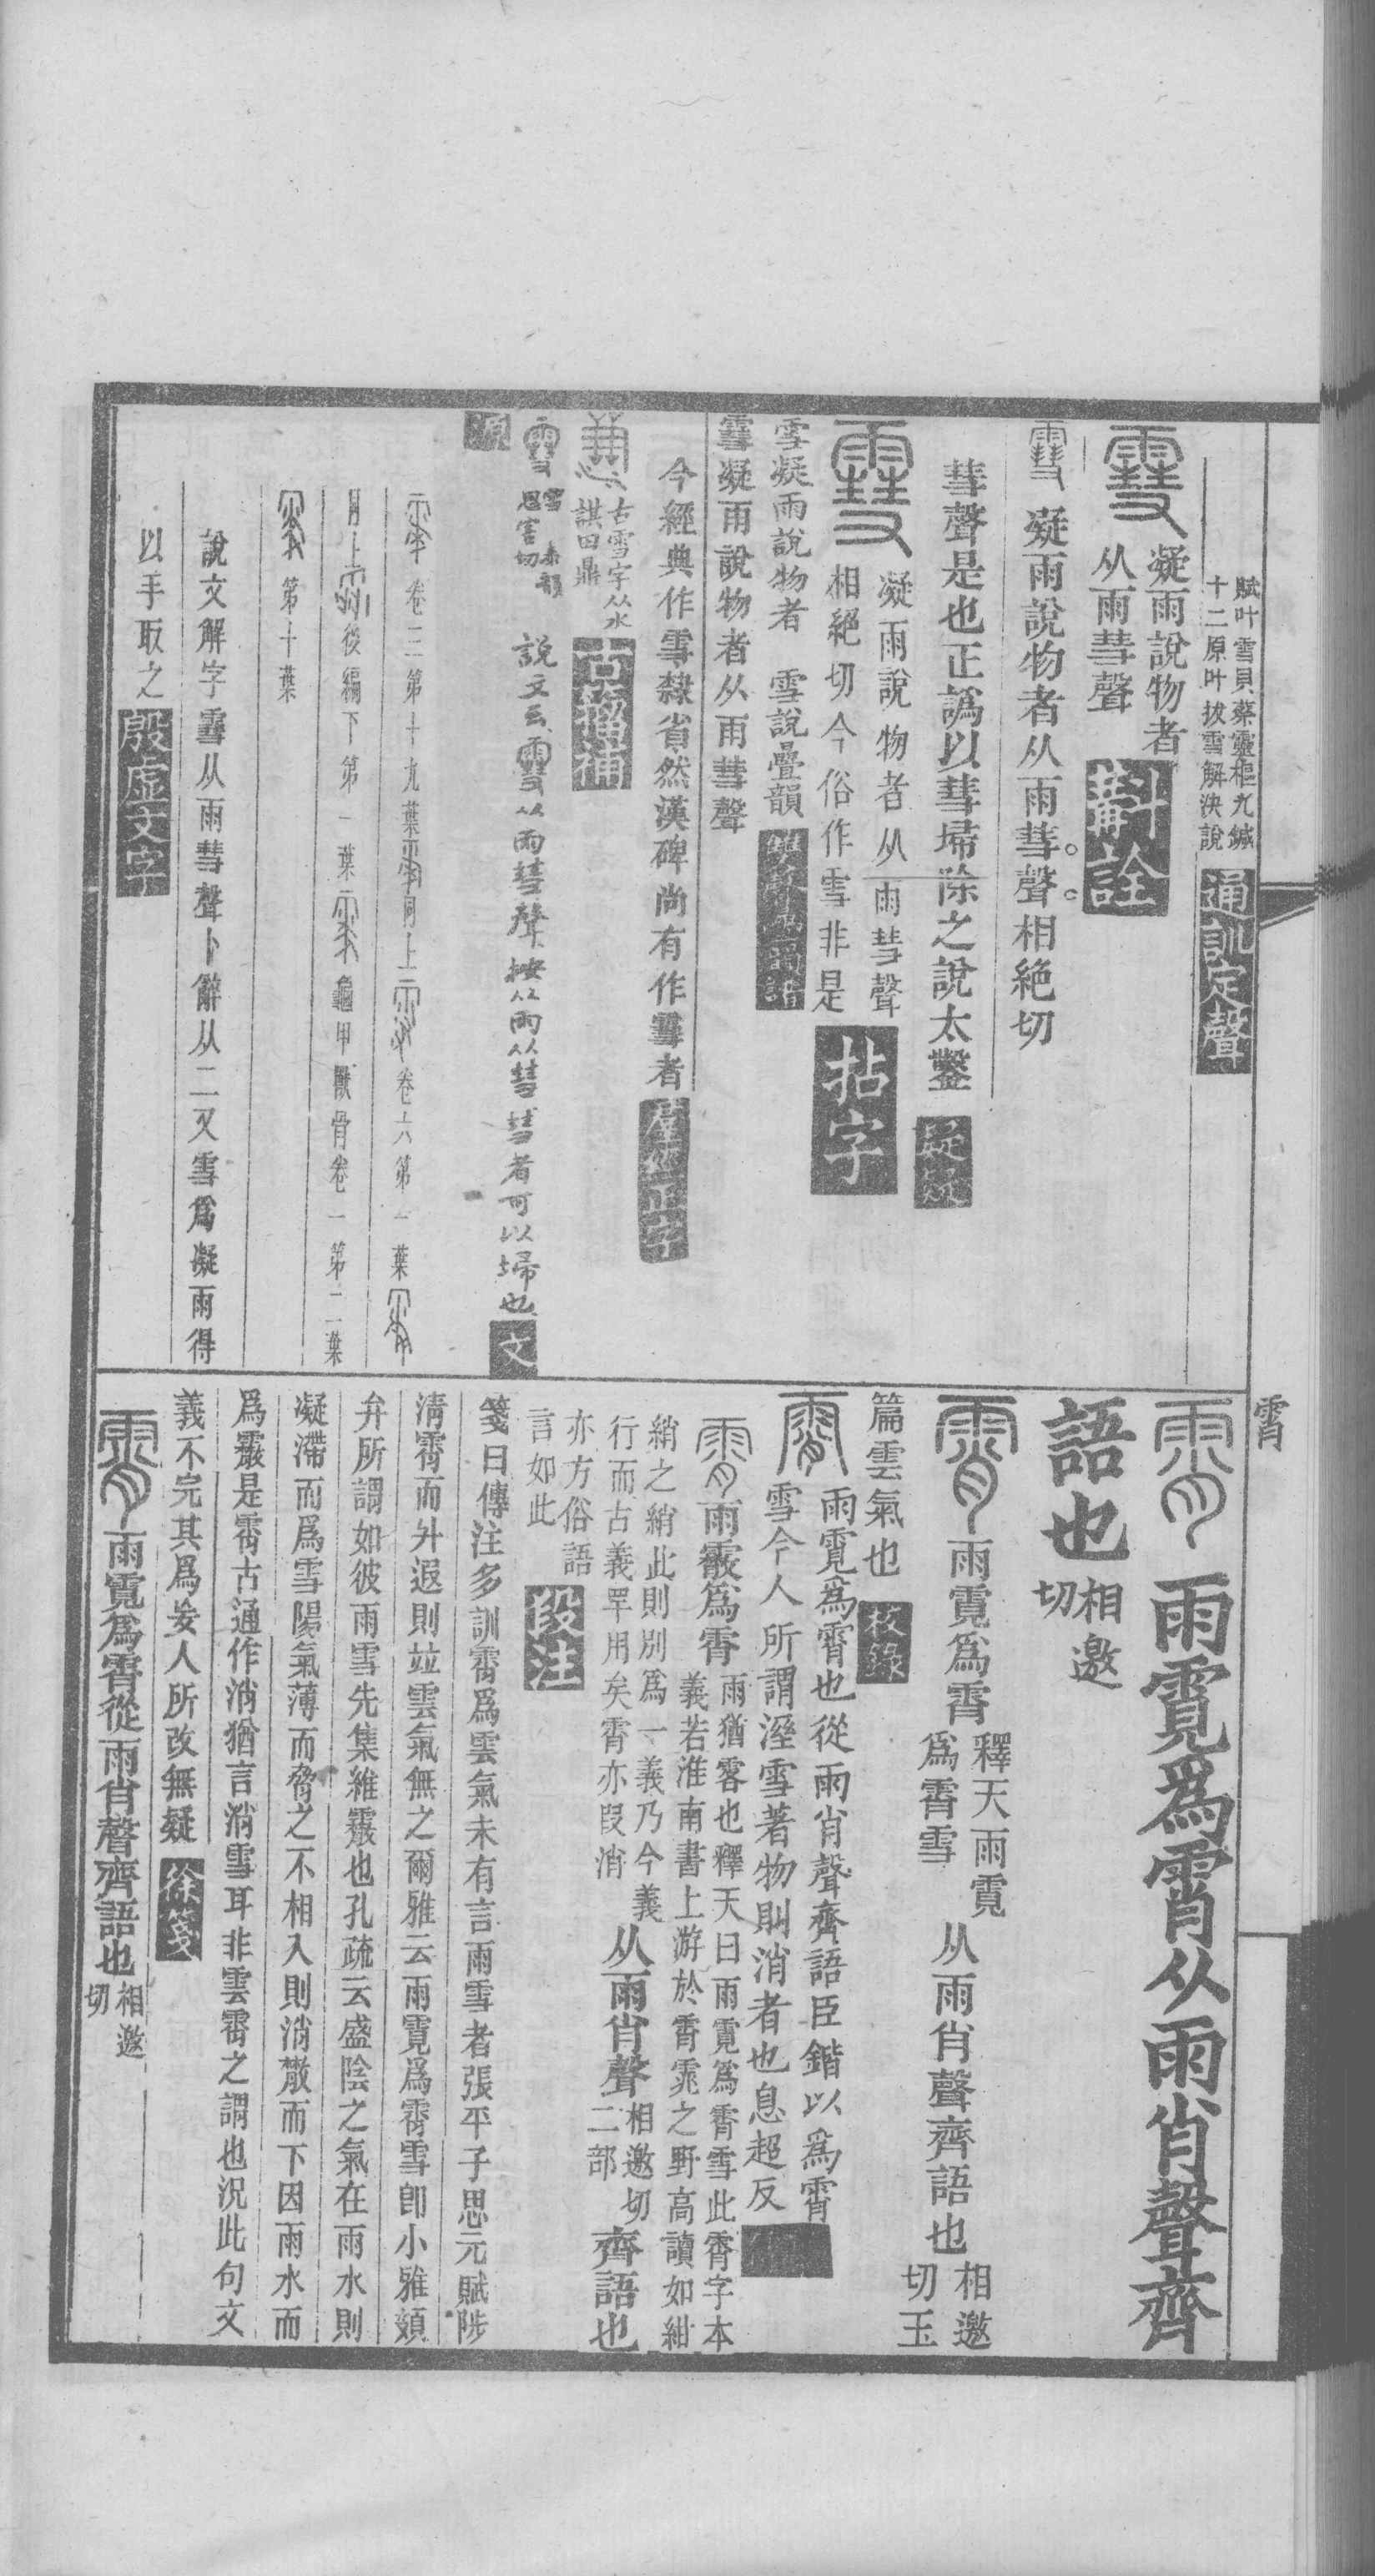 賦叶雪貝蔡靈樞九鍼
十二原叶拔雪解決說
通訓定聲
凝雨說物者
从雨彗聲
斠詮
凝雨說物者从雨彗聲相絕切
彗聲是也正譌以彗埽除之說太鑿
疑疑
凝雨說物者从雨彗聲
相絕切今俗作雪非是
拈字
雪凝雨說物者 雪說疊韻
䨮凝雨說物者从雨彗聲
今經典作雪隸省然漢碑尚有作䨮者
羣經正字
古雪字从水
諆田鼎
古籀補
思害切
說文云䨮从雨彗聲按从雨从彗彗者可以埽也
文
源
卷三第十九葉 同上 卷六第一葉
同上 後編下第一葉 龜甲獸骨卷一第二葉
第十葉
說文解字䨮从雨彗聲卜辭从二又雪爲凝雨得
以手取之
殷虛文字
霄
雨䨘爲霄从雨肖聲齊
語也
相邀
切
雨䨘爲霄
釋天雨䨘
爲霄雪
从雨肖聲齊語也
相邀
切玉
篇雲氣也
校錄
雨䨘爲霄也從雨肖聲齊語臣鍇以爲霄
雪今人所謂溼雪著物則消者也息超反
雨霰爲霄
雨猶畧也釋天曰雨䨘爲霄雪此霄字本
義若淮南書上游於霄雿之野高讀如紺
綃之綃此則別爲一義乃今義
行而古義罕用矣霄亦叚消
从雨肖聲
相邀切
二部
齊語也
亦方俗語
言如此
段注
箋曰傳注多訓霄爲雲氣未有言雨雪者張平子思元賦陟
淸霄而升遐則竝雲氣無之爾雅云雨䨘爲霄雪卽小雅頍
弁所謂如彼雨雪先集維霰也孔疏云盛陰之氣在雨水則
凝滯而爲雪陽氣薄而脅之不相入則消散而下因雨水而
爲霰是霄古通作消猶言消雪耳非雲霄之謂也況此句文
義不完其爲妄人所改無疑
徐箋
雨䨘爲霄從雨肖聲齊語也
相邀
切